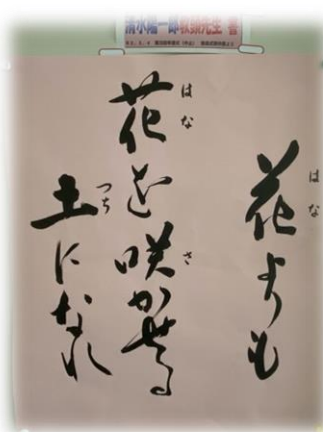 清水陽一郎教頭先生 書
花よりも
はな
花を咲かせる
はな
さ
土になれ
つち